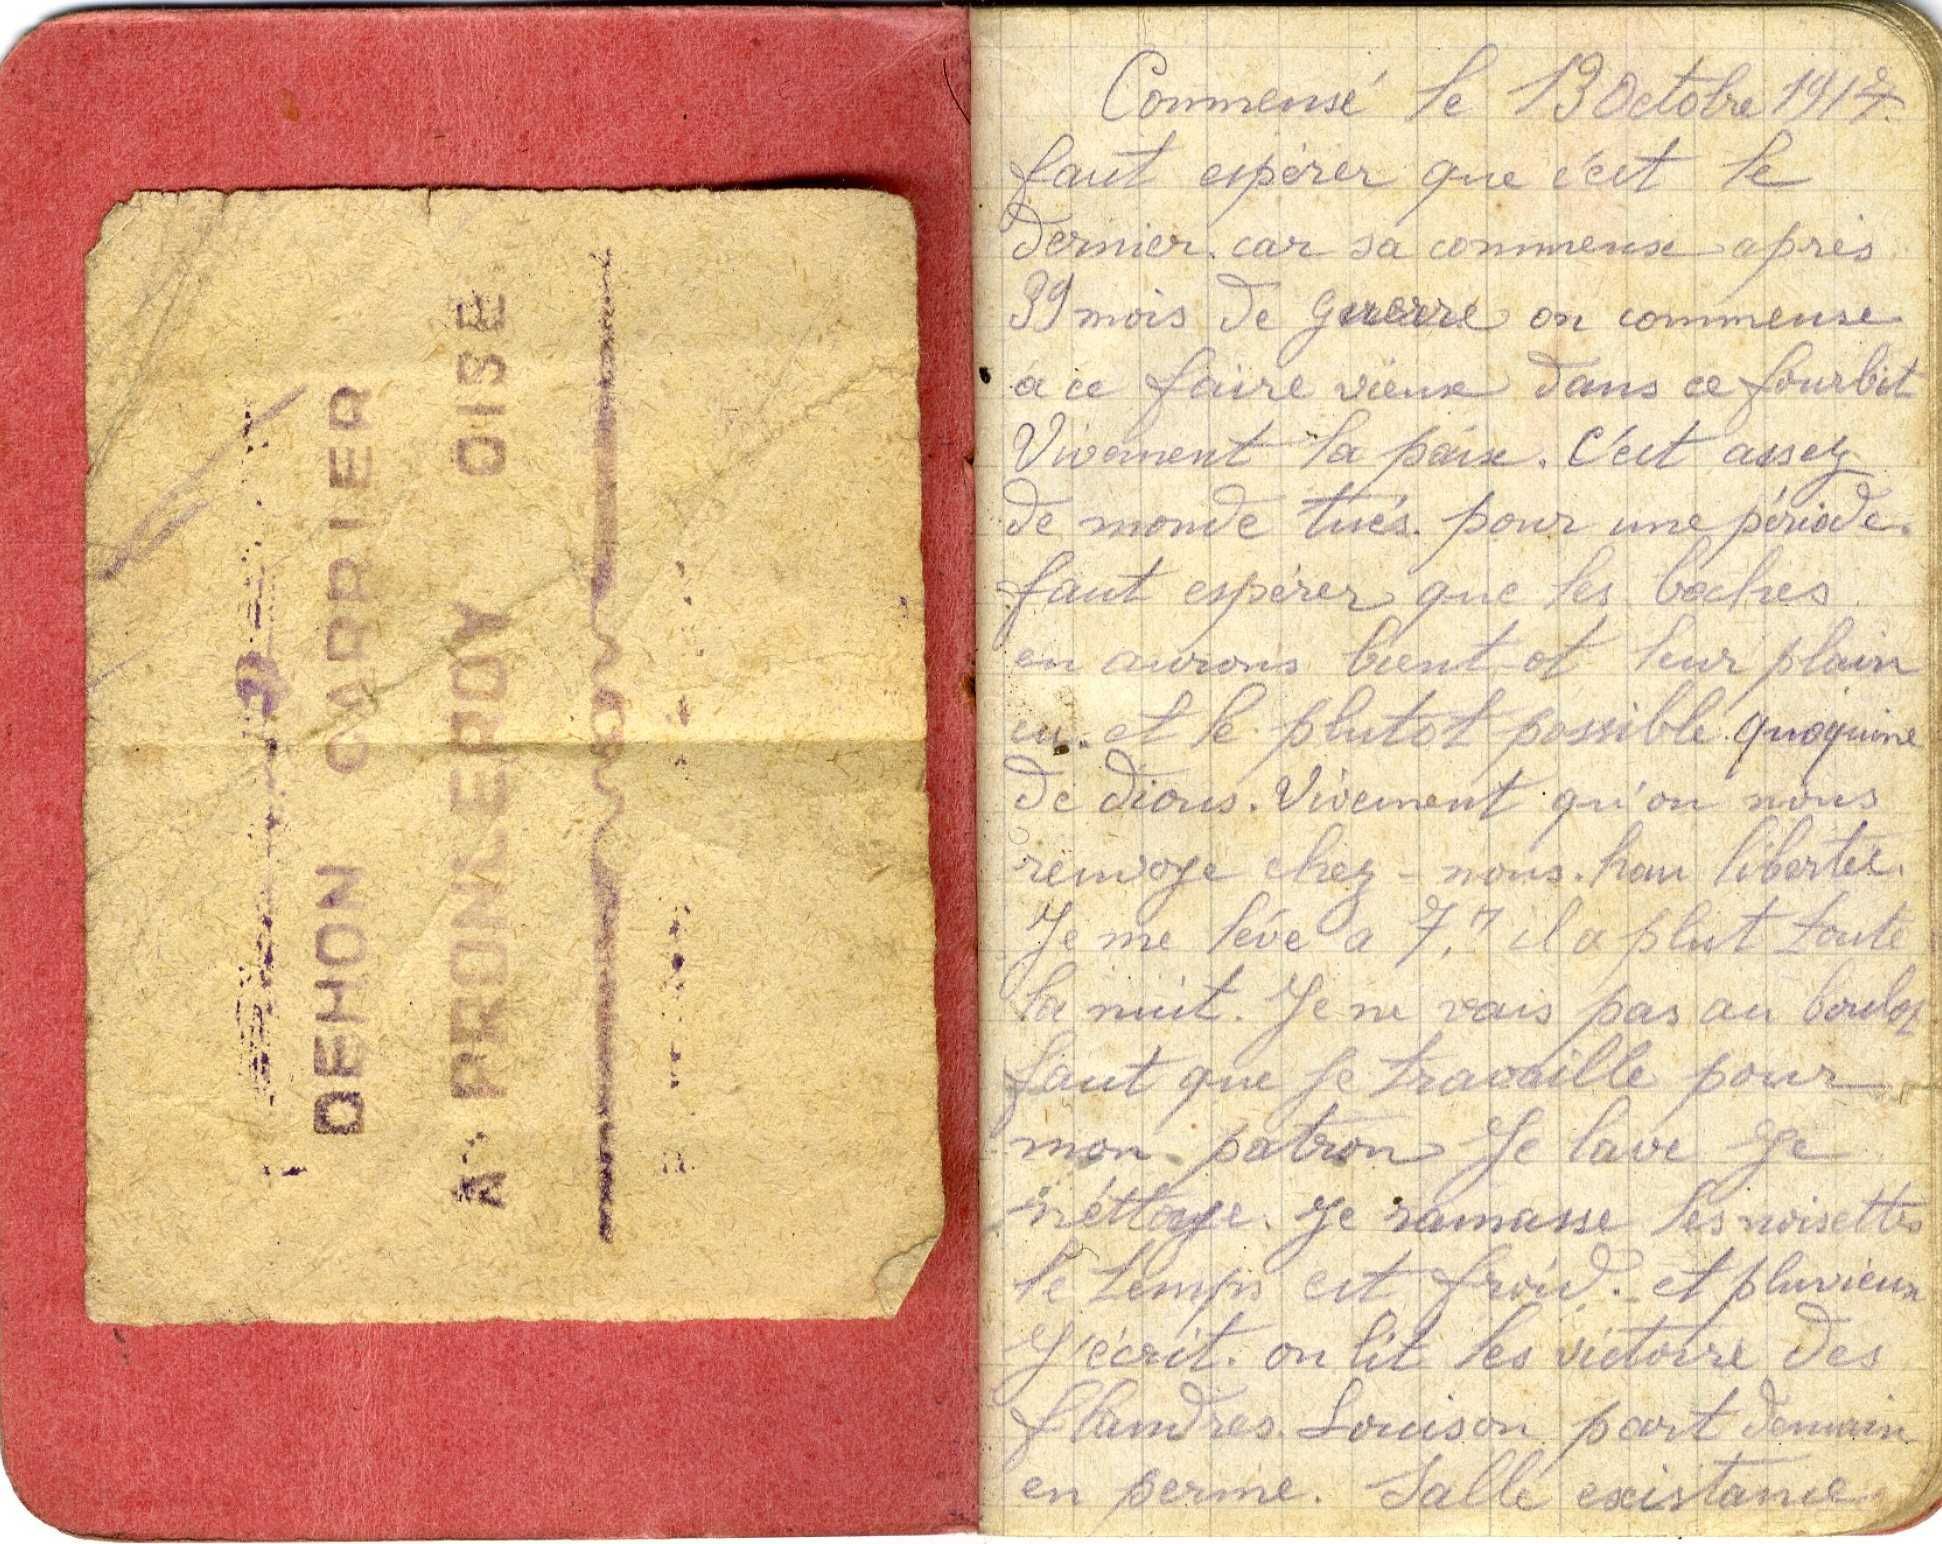 DEHON CARRIER
A PRONLEROY OISE
Commensé le 13 Octobre 1917.
faut espérer que c'est le
dernier. car sa commense après
39 mois de guerre on commense
a ce faire vieux dans ce fourbit
Vivement la paix. C'est assez
de monde tués. pour une période.
faut espérer que les boches
en aurons bient-ot leur plain
cu. et le plutot possible. quoquine
de dious. Vivement qu'on nous
renvoye chez-nous. hau libertée.
Je me lève a 7h il a plut toute
la nuit. Je ne vais pas au boulot
faut que je travaille pour
mon patron Je lave Je
néttoye. Je ramasse les noisettes
le temps est froid. et pluvieux
J'écrit. on lit les victoire des
flandres. Louison part demain
en perme. Salle existance